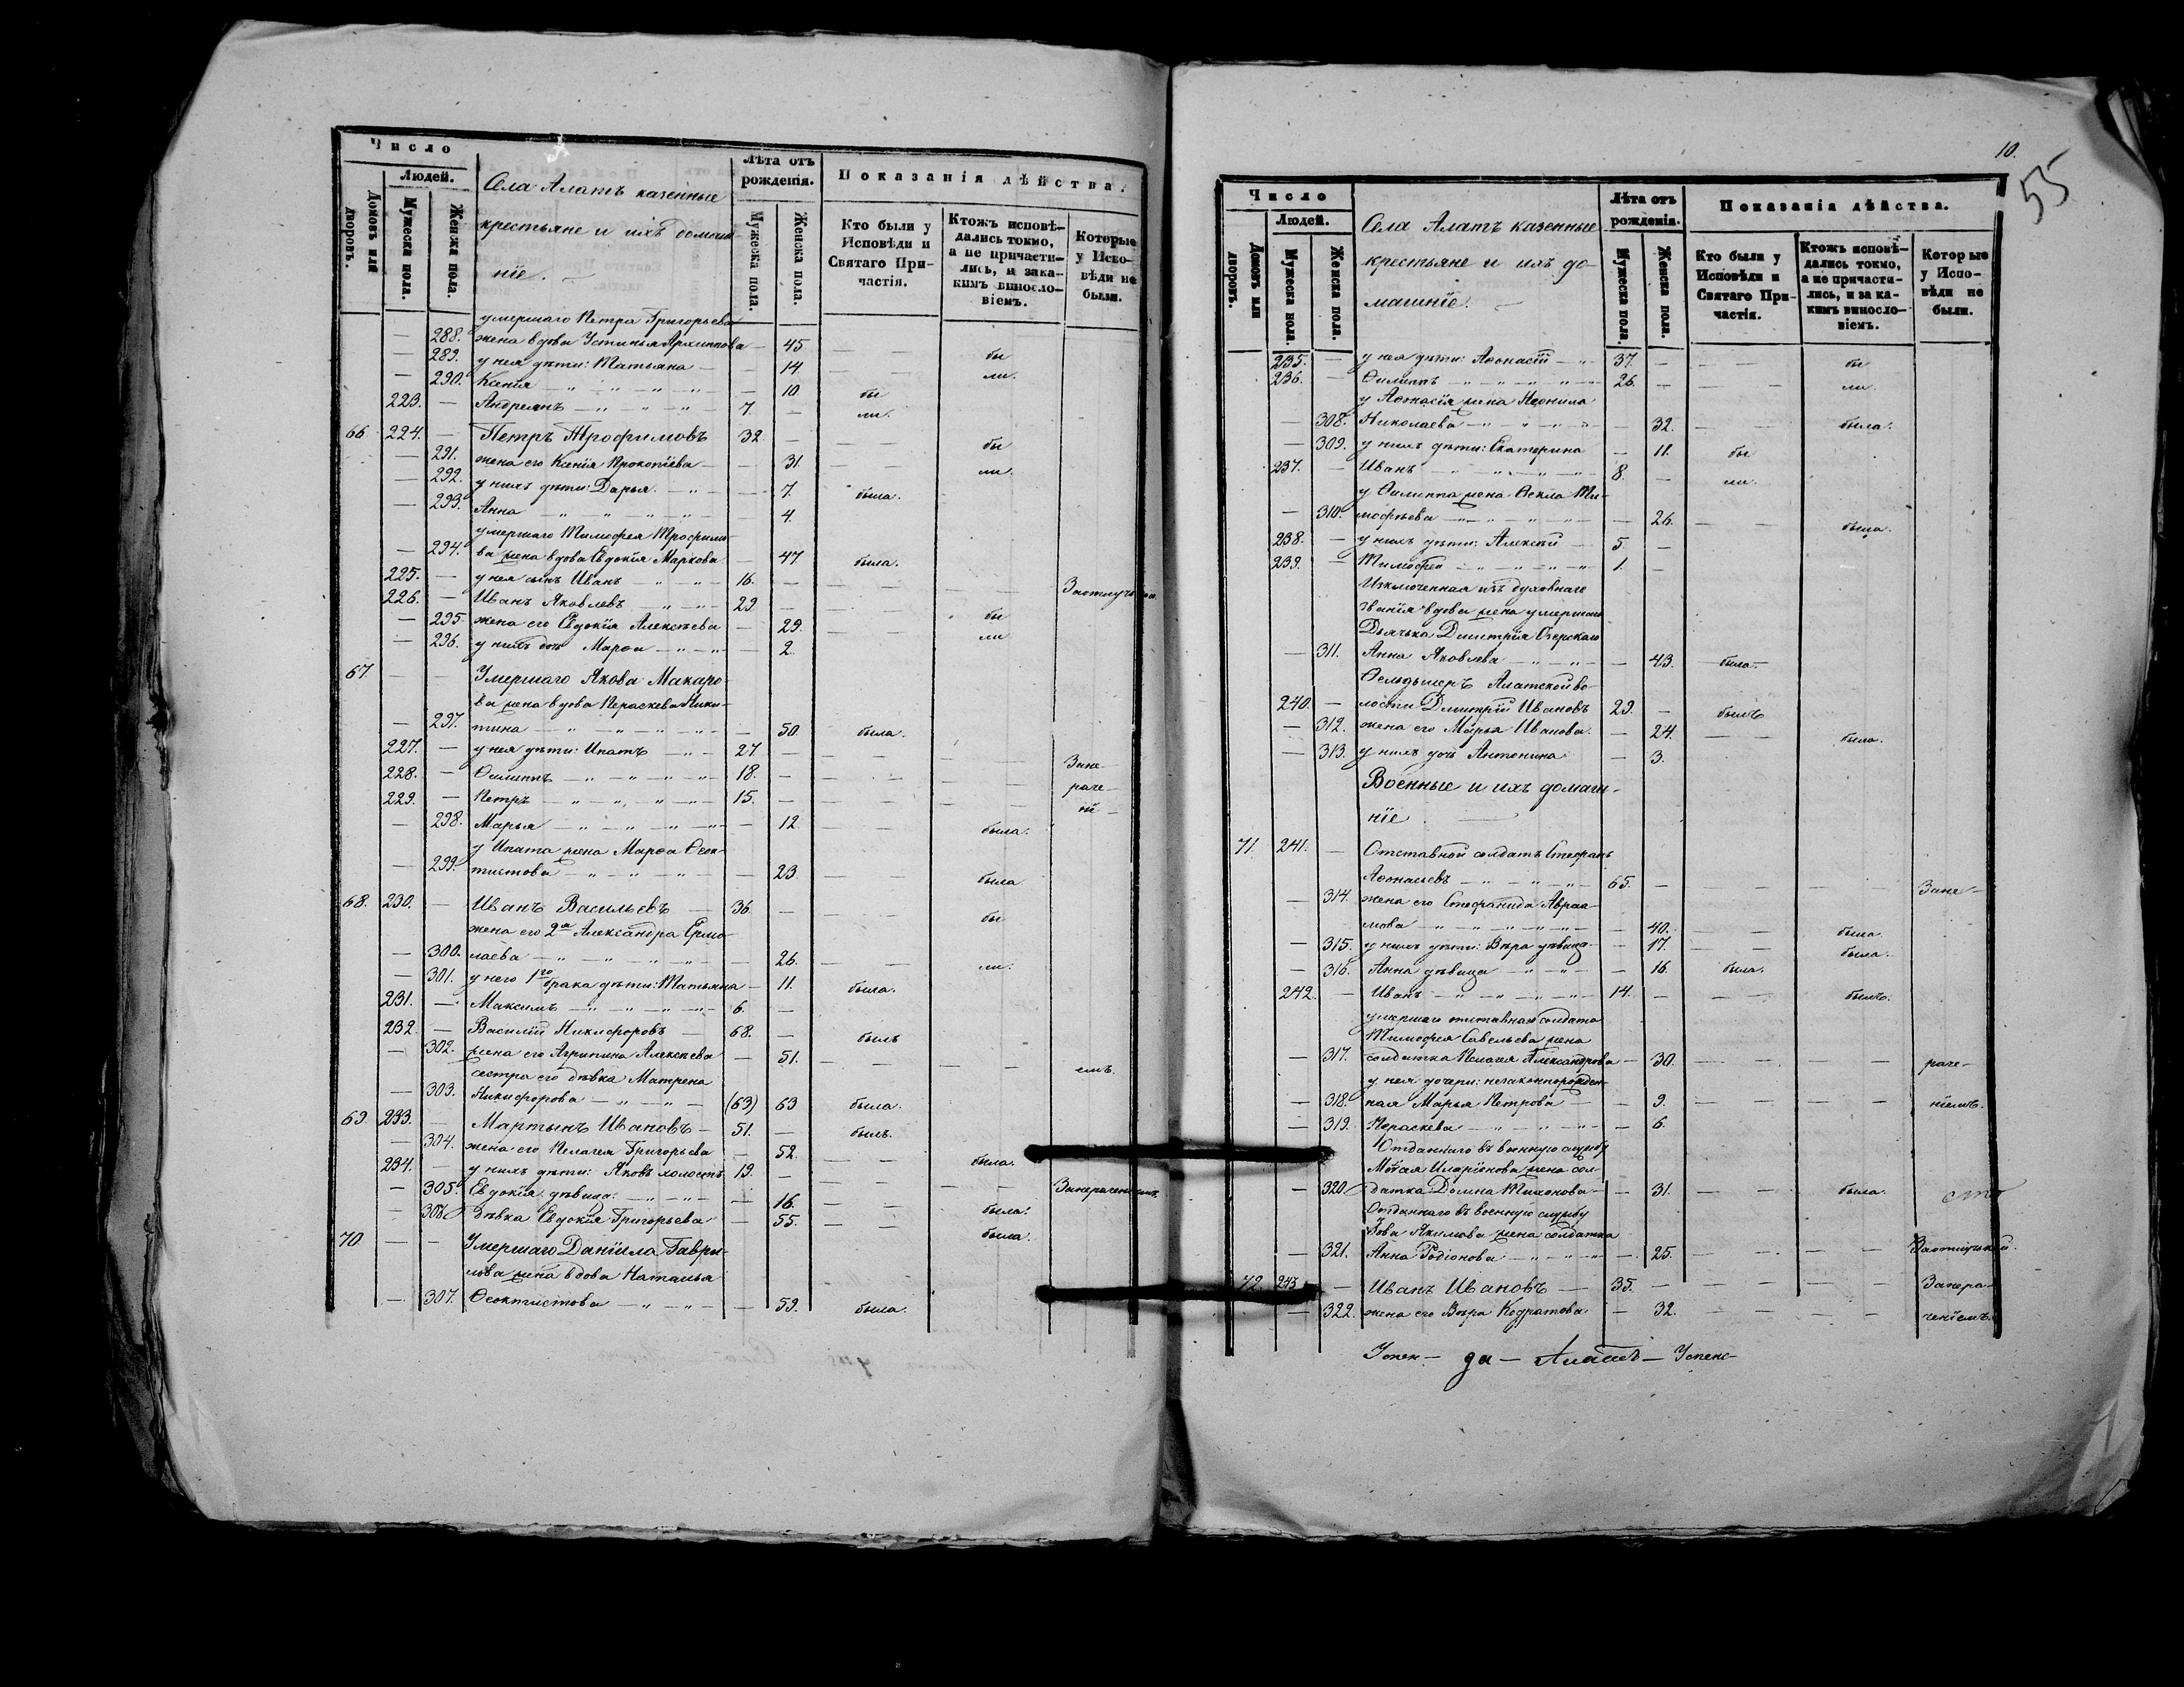 Число
Людей.
Домовъ или дворовъ.
Мужеска пола.
Женска пола.
Села Алатъ казенные
крестьяне и ихъ домаш-
ніе. —
Лѣта отъ рожденія.
Мужеска пола.
Женска пола.
Показанія дѣйства.
Кто были у Исповѣди и Святаго При- частія.
Ктожъ исповѣ- дались токмо, а не причасти- лись, и зака- кимъ виносло- віемъ.
Которые у Испо- вѣди не были.
умершаго Петра Григорьева
— 288. жена вдова Устинья Архиппова — 45. — — бы
— 289. у нея дѣти: Татьяна — — 14. — — ли.
— 290. Ксенія — " — " — " — — 10. бы
223. — Андреянъ — " — " — " — 7. — ли.
66. 224. — Петръ Трофимовъ 32. — — — бы
— 291. жена его Ксенія Прокопіева — — 31. — — ли.
— 292. у нихъ дѣти: Дарья. — " — — 7. была.
— 293. Анна — " — " — " — " — — 4.
умершаго Тимофея Трофимо-
— 294. ва жена вдова Евдокія Маркова — 47. была.
225. — у нея сынъ Иванъ — " — " — 16. — — — — —
226. — Иванъ Яковлевъ — " — " — 29. — — — бы
— 295. жена его Евдокія Алексѣева — 29. — — ли
— 296. у нихъ дочь Марѳа — " — " — — 2.
67. — — Умершаго Якова Макаро-
ва жена вдова Параскева Ники-
— 297. тина — " — " — " — " — — 50. была.
227. — у нея дѣти: Ипатъ — " — 27 — — — — — Зане-
228. — Филиппъ — " — " — " — 18. — — — — — раче-
229. — Петръ — " — " — " — " — 15. — — — — — ні-
— 298. Марья — " — " — " — " — — 12. — — была.
у Ипата жена Марѳа Ѳеок-
— 299. тистова — " — " — " — — 23. — — была
68. 230. — Иванъ Васильевъ — 36. — — — бы
жена его 2я Александра Ермо-
— 300. лаева — " — " — " — " — — 26. — — ли.
— 301. у него 1го брака дѣти: Татьяна — 11. была.
231. — Максимъ — " — " — " — " — 6. —
232. — Василій Никифоровъ — 68. — былъ
— 302. жена его Агрипина Алексѣева — 51. — — — — емъ.
сестра его дѣвка Матрена
— 303. Никифорова — " — " — (63) 63 была.
69. 233. — Мартынъ Ивановъ — 51. — былъ.
— 304. жена его Пелагея Григорьева — 52. — — была.
234. — у нихъ дѣти: Яковъ холостъ 19. — — — — —
— 305. Евдокія дѣвица. — " — " — — 16. — — была.
— 306. дѣвка Евдокія Григорьева — 55. — — была.
70. — — Умершаго Даніила Гаври-
лова жена вдова Наталья
— 307. Ѳеоктистова — " — " — — 59. была.
10.
55
Число
Людей.
Домовъ или дворовъ.
Мужеска пола.
Женска пола.
Села Алатъ казенные
крестьяне и ихъ до-
машніе. —
Лѣта отъ рожденія.
Мужеска пола.
Женска пола.
Показанія дѣйства.
Кто были у Исповѣди и Святаго При- частія.
Ктожъ исповѣ- дались токмо, а не причасти- лись, и за ка- кимъ виносло- віемъ.
Которые у Испо- вѣди не были.
235. — у нея дѣти: Аѳонасій — " — 37. — — — бы
236. — Филиппъ — " — " — " — " — 26. — — — ли.
у Аѳонасія жена Неонила
— 308. Николаева — " — " — " — — 32. — — была.
— 309. у нихъ дѣти: Екатерина — 11. бы
237. — Иванъ — " — " — " — " — 8. — ли.
у Филиппа жена Ѳекла Ти-
— 310. мофѣева — " — " — " — " — — 26. — — была.
238. — у нихъ дѣти: Алексѣй — 5. —
239. — Тимофей — " — " — " — 1. —
Исключенная изъ духовнаго
званія вдова жена умершаго
Дьячька Дмитрія
— 311. Анна Яковлева — " — " — — 43. была.
Фельдшеръ Алатской во-
240. — лости Дмитрій Ивановъ 29. — былъ
— 312. жена его Марья Иванова. — 24. — — была.
— 313. у нихъ дочь Антонина — 3.
Военные и ихъ домаш-
ніе. —
71. 241. — Отставной солдатъ Стефанъ
Аѳонасьевъ — " — " — " — 65. — — — — — Зане-
— 314. жена его Стефанида Авраа-
мова — " — " — " — " — — 40. — — была.
— 315. у нихъ дѣти: Вѣра дѣвица — — 17. — — была.
— 316. Анна дѣвица — " — " — — 16. была.
242. — Иванъ — " — " — " — " — 14. — — — былъ.
умершаго отставнаго солдата
Тимофея Савельева жена
— 317. солдатка Пелагея Александрова — 30. — — — — раче-
у нея дочери: незаконнорожден-
— 318. ная Марья Петрова — — 9. — — — — ніемъ.
— 319. Параскева — " — " — " — — 6.
Отданнаго въ военную службу
Моѵсея Иларіонова жена сол-
— 320. датка Домна Тихонова — — 31. — — была.
Отданнаго въ военную службу
Іова Якимова жена солдатка
— 321. Анна Родіонова — " — " — — 25. — — — —
72. 243. — Иванъ Ивановъ — 35. — — — — — Занера-
— 322. жена его Вѣра Кодратова. — 32. — — — — ченіемъ.
Успен — да — Алатъ — Успенс-